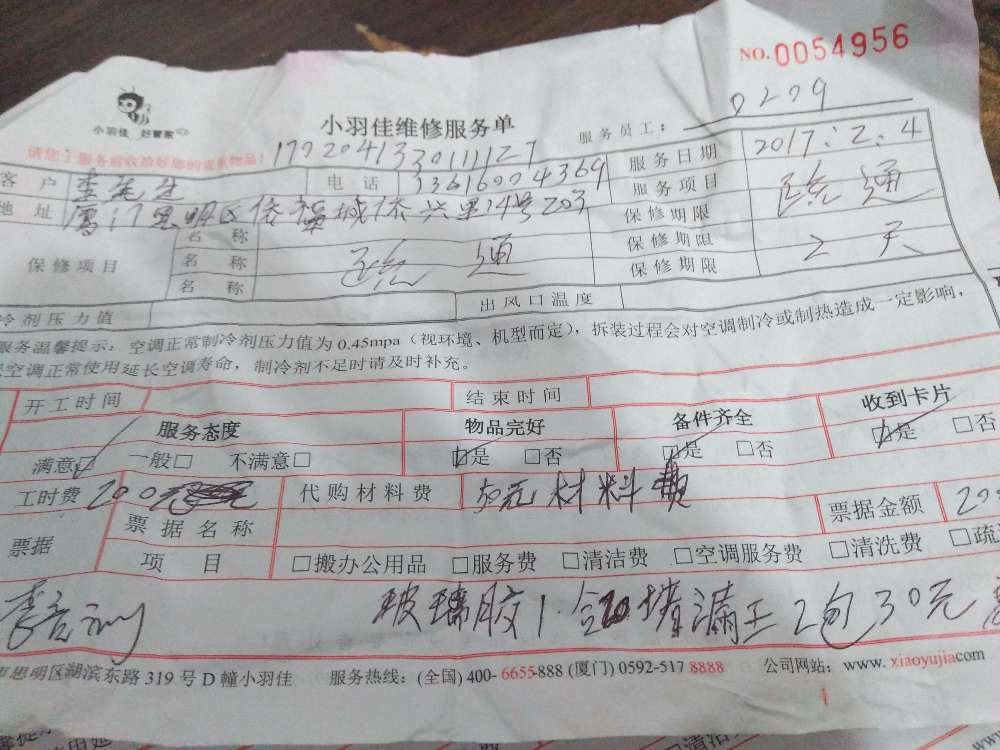 NO.0054956
小羽佳 好管家
小羽佳维修服务单
服务员工： 0209
请您于服务前收拾好您的贵重物品！ 1702041330111127
服务日期 2017.2.4
客户 李先生 电话 13616004369
服务项目 疏通
地址 厦门思明区 里24号203
保修期限
保修项目 名称 疏通 保修期限 2天
名称 保修期限
名称
冷剂压力值 出风口温度
服务温馨提示：空调正常制冷剂压力值为0.45mpa（视环境、机型而定），拆装过程会对空调制冷或制热造成一定影响，
空调正常使用延长空调寿命，制冷剂不足时请及时补充。
开工时间 结束时间
服务态度 物品完好 备件齐全 收到卡片
满意☑ 一般□ 不满意□ ☑是 □否 ☑是 □否 ☑是 □否
工时费 200元 代购材料费 50元材料费 票据金额 20
票据 票据名称
项目 □搬办公用品 □服务费 □清洁费 □空调服务费 □清洗费 □疏
玻璃胶1 2包30元
思明区湖滨东路319号D幢小羽佳 服务热线：(全国) 400-6655-888 (厦门) 0592-517 8888 公司网站：www.xiaoyujia.com